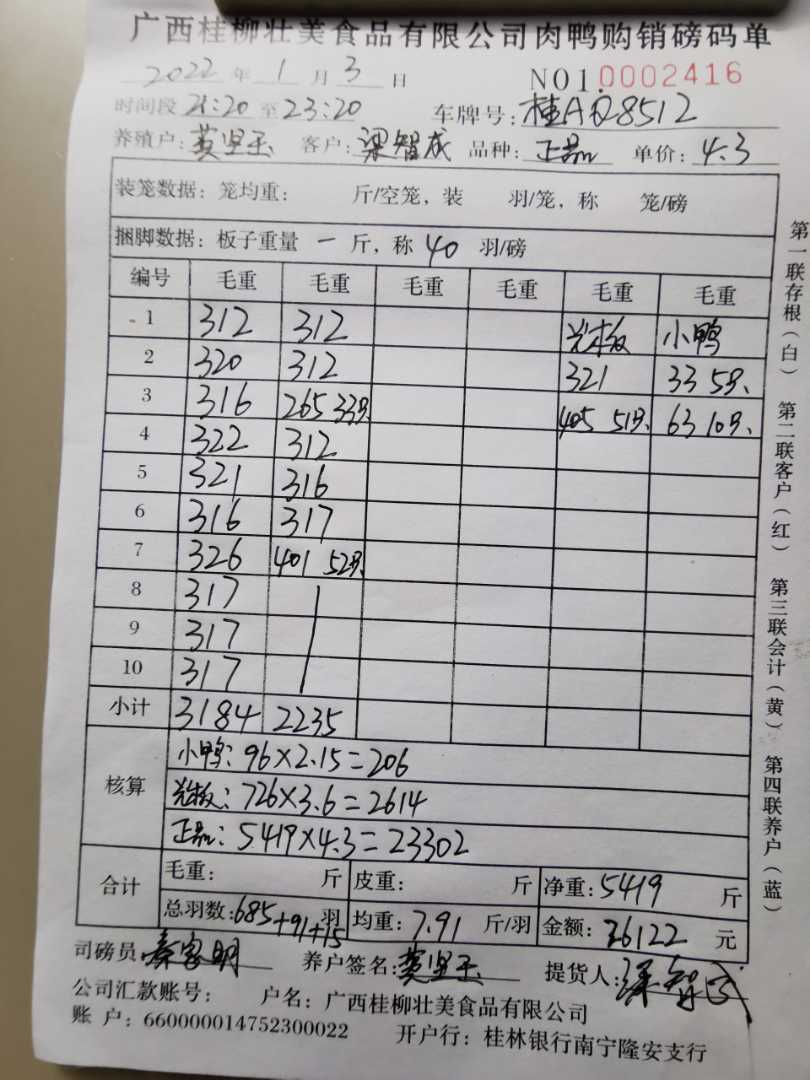 广西桂柳壮美食品有限公司肉鸭购销磅码单
2022 年 1 月 3 日 NO1.0002416
时间段 21:20 至 23:20 车牌号: 桂AQ8512
养殖户: 黄坚玉 客户: 梁智成 品种: 正品 单价: 4.3
装笼数据: 笼均重: 斤/空笼, 装 羽/笼, 称 笼/磅
捆脚数据: 板子重量 一 斤, 称 40 羽/磅
编号 毛重 毛重 毛重 毛重 毛重 毛重
1 312 312 光板 小鸭
2 320 312 321 33 5只.
3 316 265 33只. 405 51只. 63 10只.
4 322 312
5 321 316
6 316 317
7 326 401 52只.
8 317
9 317
10 317
小计 3184 2235
小鸭: 96×2.15=206
核算 光板: 726×3.6=2614
正品: 5419×4.3=23302
合计 毛重: 斤 皮重: 斤 净重: 5419 斤
总羽数: 685+91+15 羽 均重: 7.91 斤/羽 金额: 26122 元
司磅员: 秦家明 养户签名: 黄坚玉 提货人: 梁智成
公司汇款账号: 户名: 广西桂柳壮美食品有限公司
账 户: 660000014752300022 开户行: 桂林银行南宁隆安支行
第一联存根(白) 第二联客户(红) 第三联会计(黄) 第四联养户(蓝)